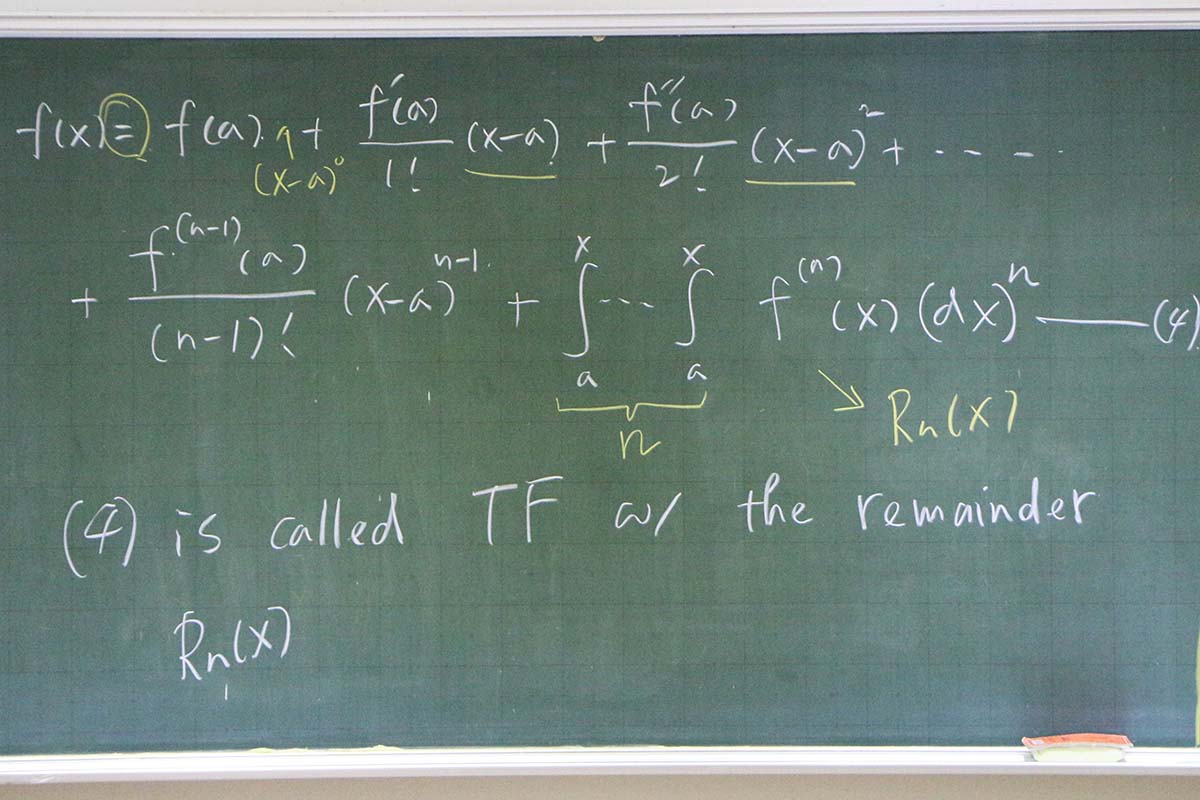 f(x) = f(a)·1 + f'(a)/1! (x-a) + f''(a)/2! (x-a)² + ‐ ‐ ‐ ‐
(x-a)⁰
+ f⁽ⁿ⁻¹⁾(a)/(n-1)! (x-a)ⁿ⁻¹ + ∫ₐˣ ⋯ ∫ₐˣ f⁽ⁿ⁾(x) (dx)ⁿ —— (4)
n
↘ Rn(x)
(4) is called TF w/ the remainder
Rn(x)